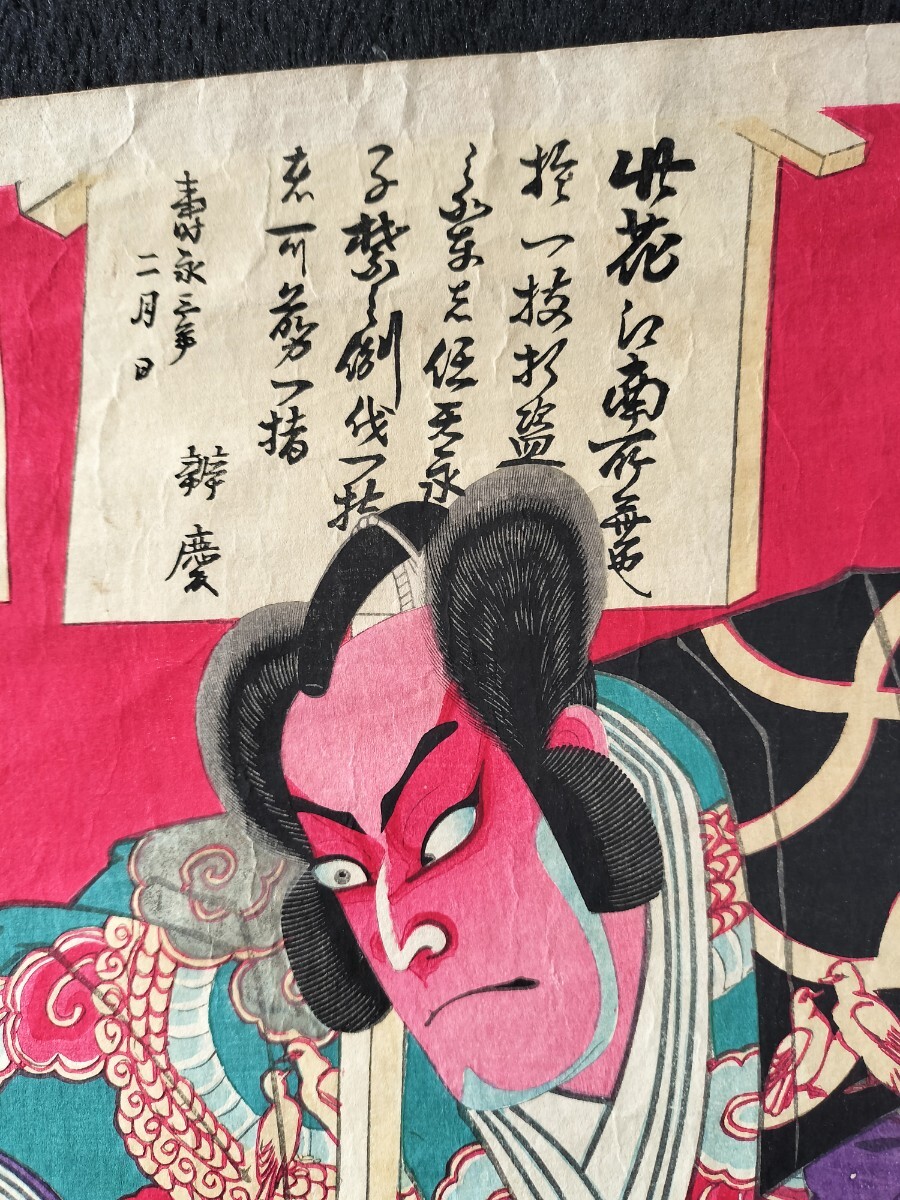 此花江南所無也
於一枝折盗
之輩者任天永
子禁之例伐一枝
者可剪一指
壽永三年
二月 日
辨慶